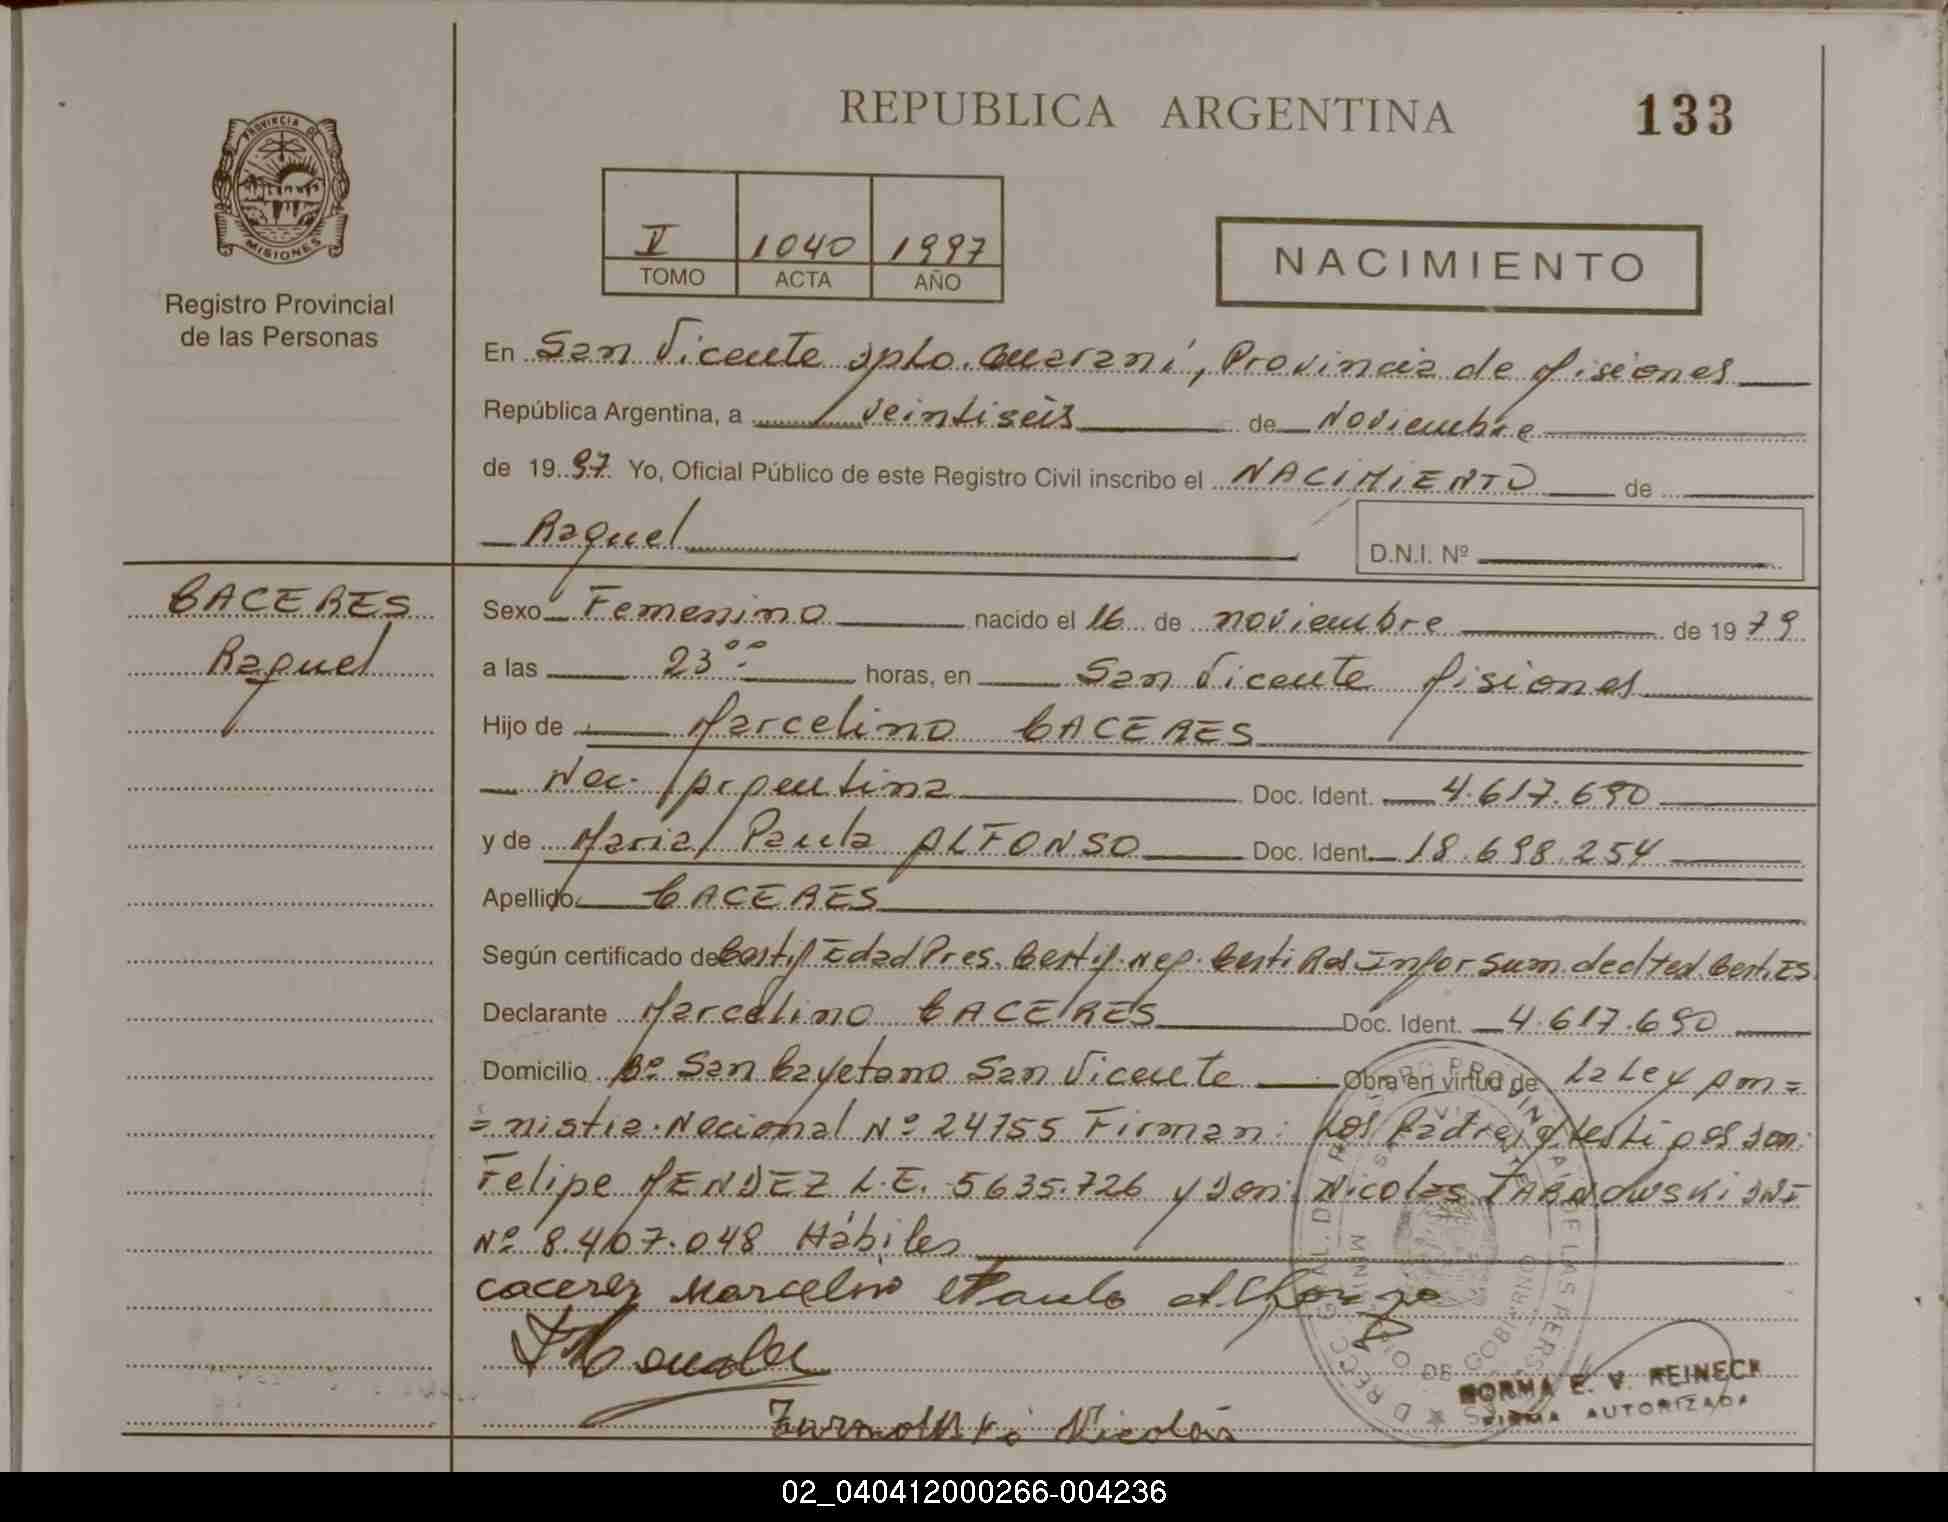 REPUBLICA ARGENTINA
133
PROVINCIA DE
MISIONES
Registro Provincial
de las Personas
V 1040 1997
TOMO ACTA AÑO
NACIMIENTO
En San Vicente dpto. Guaraní, Provincia de Misiones
República Argentina, a veintiseis de Noviembre
de 1997 Yo, Oficial Público de este Registro Civil inscribo el NACIMIENTO de
Raquel
D.N.I. Nº
CACERES
Raquel
Sexo Femenino nacido el 16 de noviembre de 1979
a las 23 ºº horas, en San Vicente Misiones
Hijo de Marcelino CACERES
Nac. Argentina Doc. Ident. 4.617.690
y de Maria Paula ALFONSO Doc. Ident. 18.698.254
Apellido CACERES
Según certificado de Certif Edad Pres. Certif. Neg. Certi Res Infor Sum. ded ted Cert. ES
Declarante Marcelino CACERES Doc. Ident. 4.617.690
Domicilio Bº San Cayetano San Vicente Obra en virtud de La Ley Am=
=nistia Nacional Nº 24755 Firman: Los Padres y testigos don:
Felipe MENDEZ L.E. 5635.726 y don: Nicolas TARNOWSKI DNI
Nº 8.407.048 Hábiles
Caceres Marcelino Paula Alfonzo
Tarnowski Nicolás
NORMA E. V. REINECK
FIRMA AUTORIZADA
02_040412000266-004236